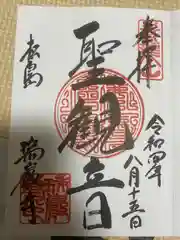 奉拝
令和四年
八月十五日
聖観音
松島
瑞巌寺